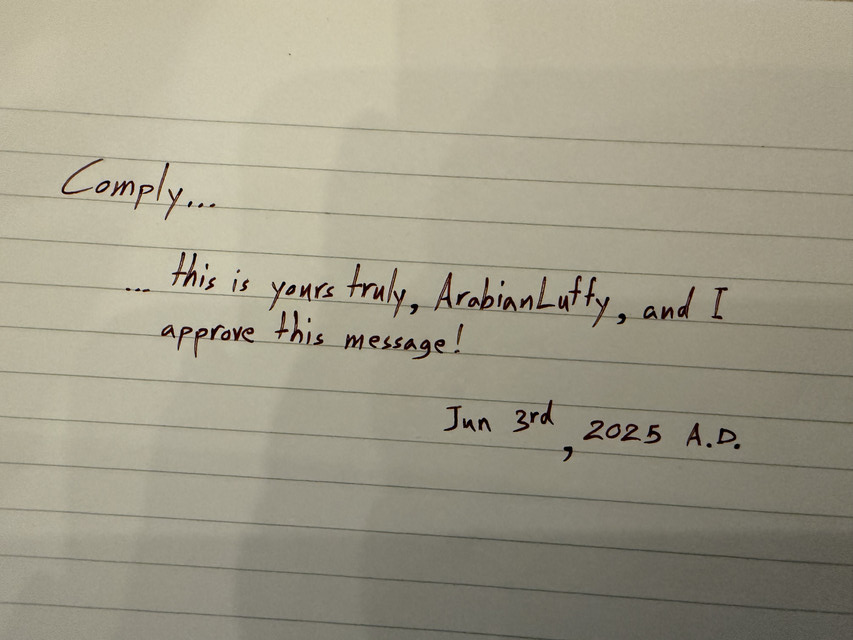 Comply...
... this is yours truly, ArabianLuffy, and I
approve this message!
Jun 3rd, 2025 A.D.